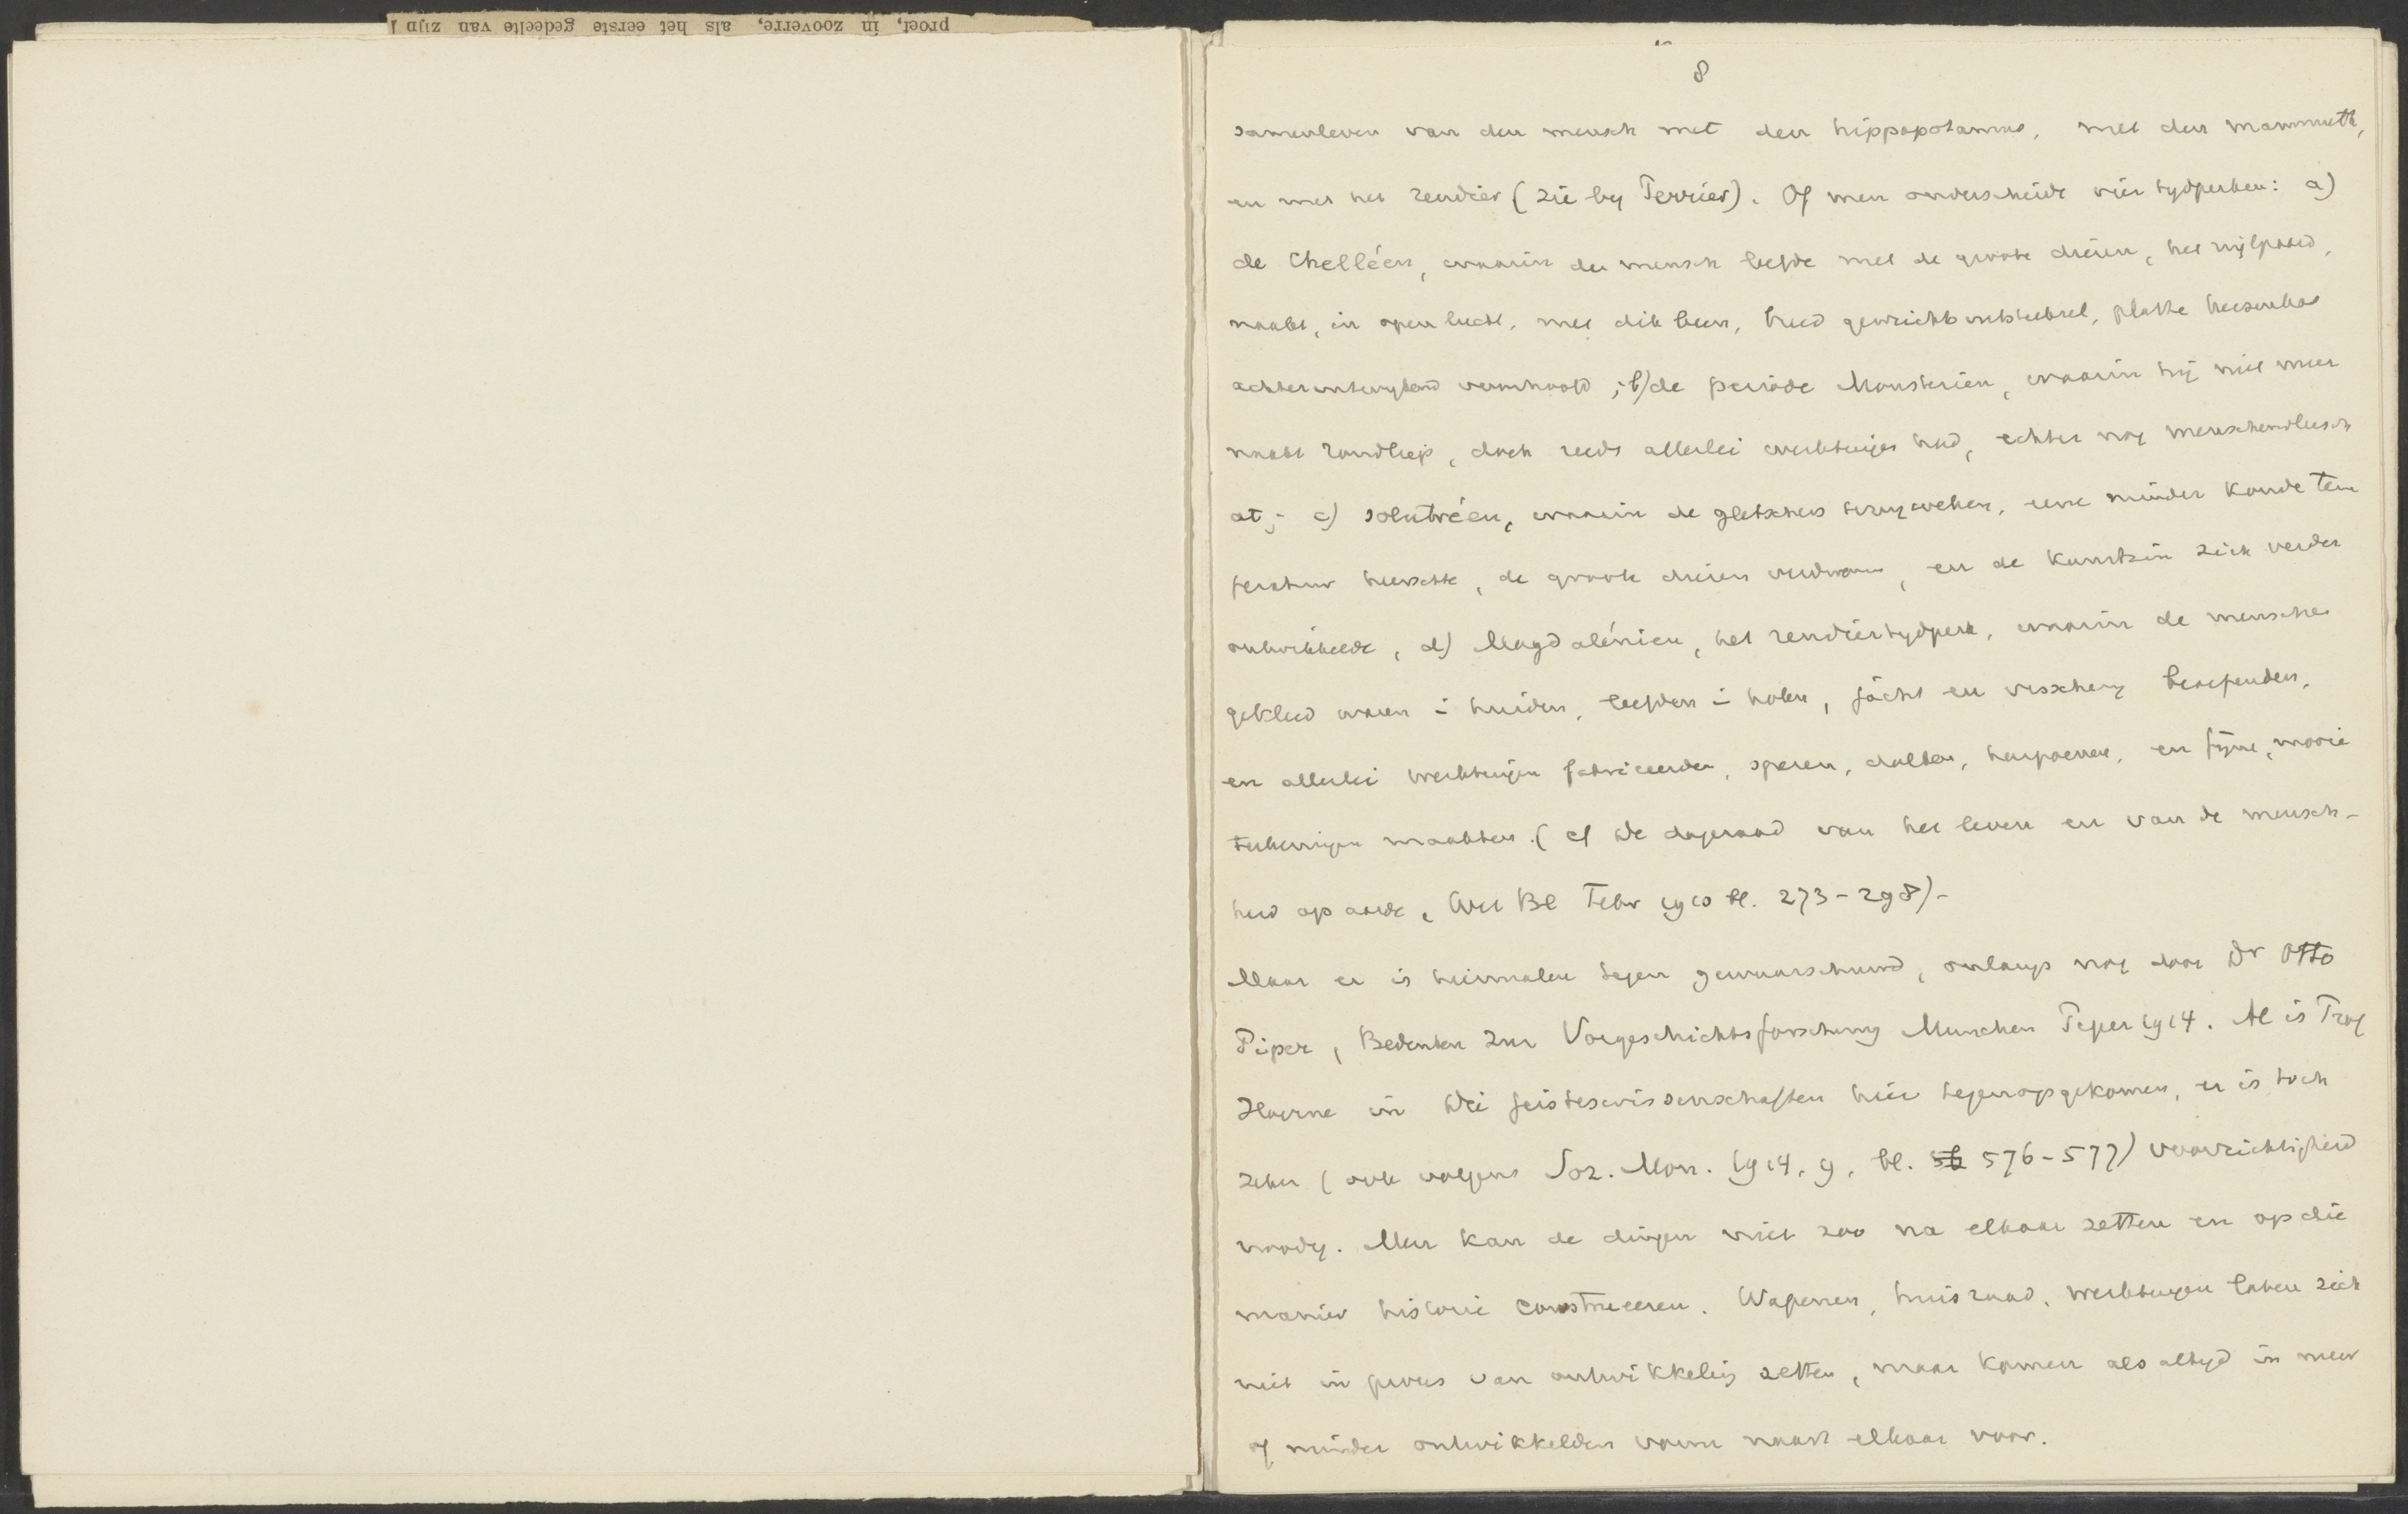 proef, in zooverre, als het eerste gedeelte van zijn
8
samenleven van den mensch met den hippopotamus, met den mammuth,
en met het rendier (zie by Terrier). Of men onderscheidt vier tydperken: a)
de Chelléen, waarin de mensch leefde met de groote dieren, het nijlpaard,
naakt, in open lucht, met dik been, breed gewricht, platte
achteruitwykend voorhoofd; b) de periode Mousterien, waarin hij niet meer
naakt rondliep, doch reeds allerlei werktuigen had, echter nog menschenvleesch
at; c) solutréen, waarin de gletschers terugweken, eene minder koude tem
peratuur heerschte, de groote dieren verdwenen, en de kunstzin zich verder
ontwikkelde, d) Magdalénien, het rendiertydperk, waarin de menschen
gekleed waren in huiden, leefden in holen, jacht en visschery beoefenden,
en allerlei werktuigen fabriceerden, speren, dolken, harpoenen, en fijne, mooie
teekeningen maakten. (cf De dageraad van het leven en van de mensch-
heid op aarde, Wet Bl Febr 1910 bl. 273-298)-
Maar er is herhaalde tegen gewaarschuwd, onlangs nog door Dr Otto
Piper, Bedenken zur Vorgeschichtsforschung Munchen Piper 1914. Al is
Hoerne in Die Geisteswissenschaften hier tegenopgekomen, er is toch
zeker (ook volgens Soz. Mon. 1914, 9, bl. 576-577) voorzichtigheid
noodig. Men kan de dingen niet zoo na elkaar zetten en op die
manier historie construeeren. Wapenen, huisraad, werktuigen laten zich
niet in proces van ontwikkeling zetten, maar komen als altyd in meer
of minder ontwikkelden vorm naast elkaar voor.